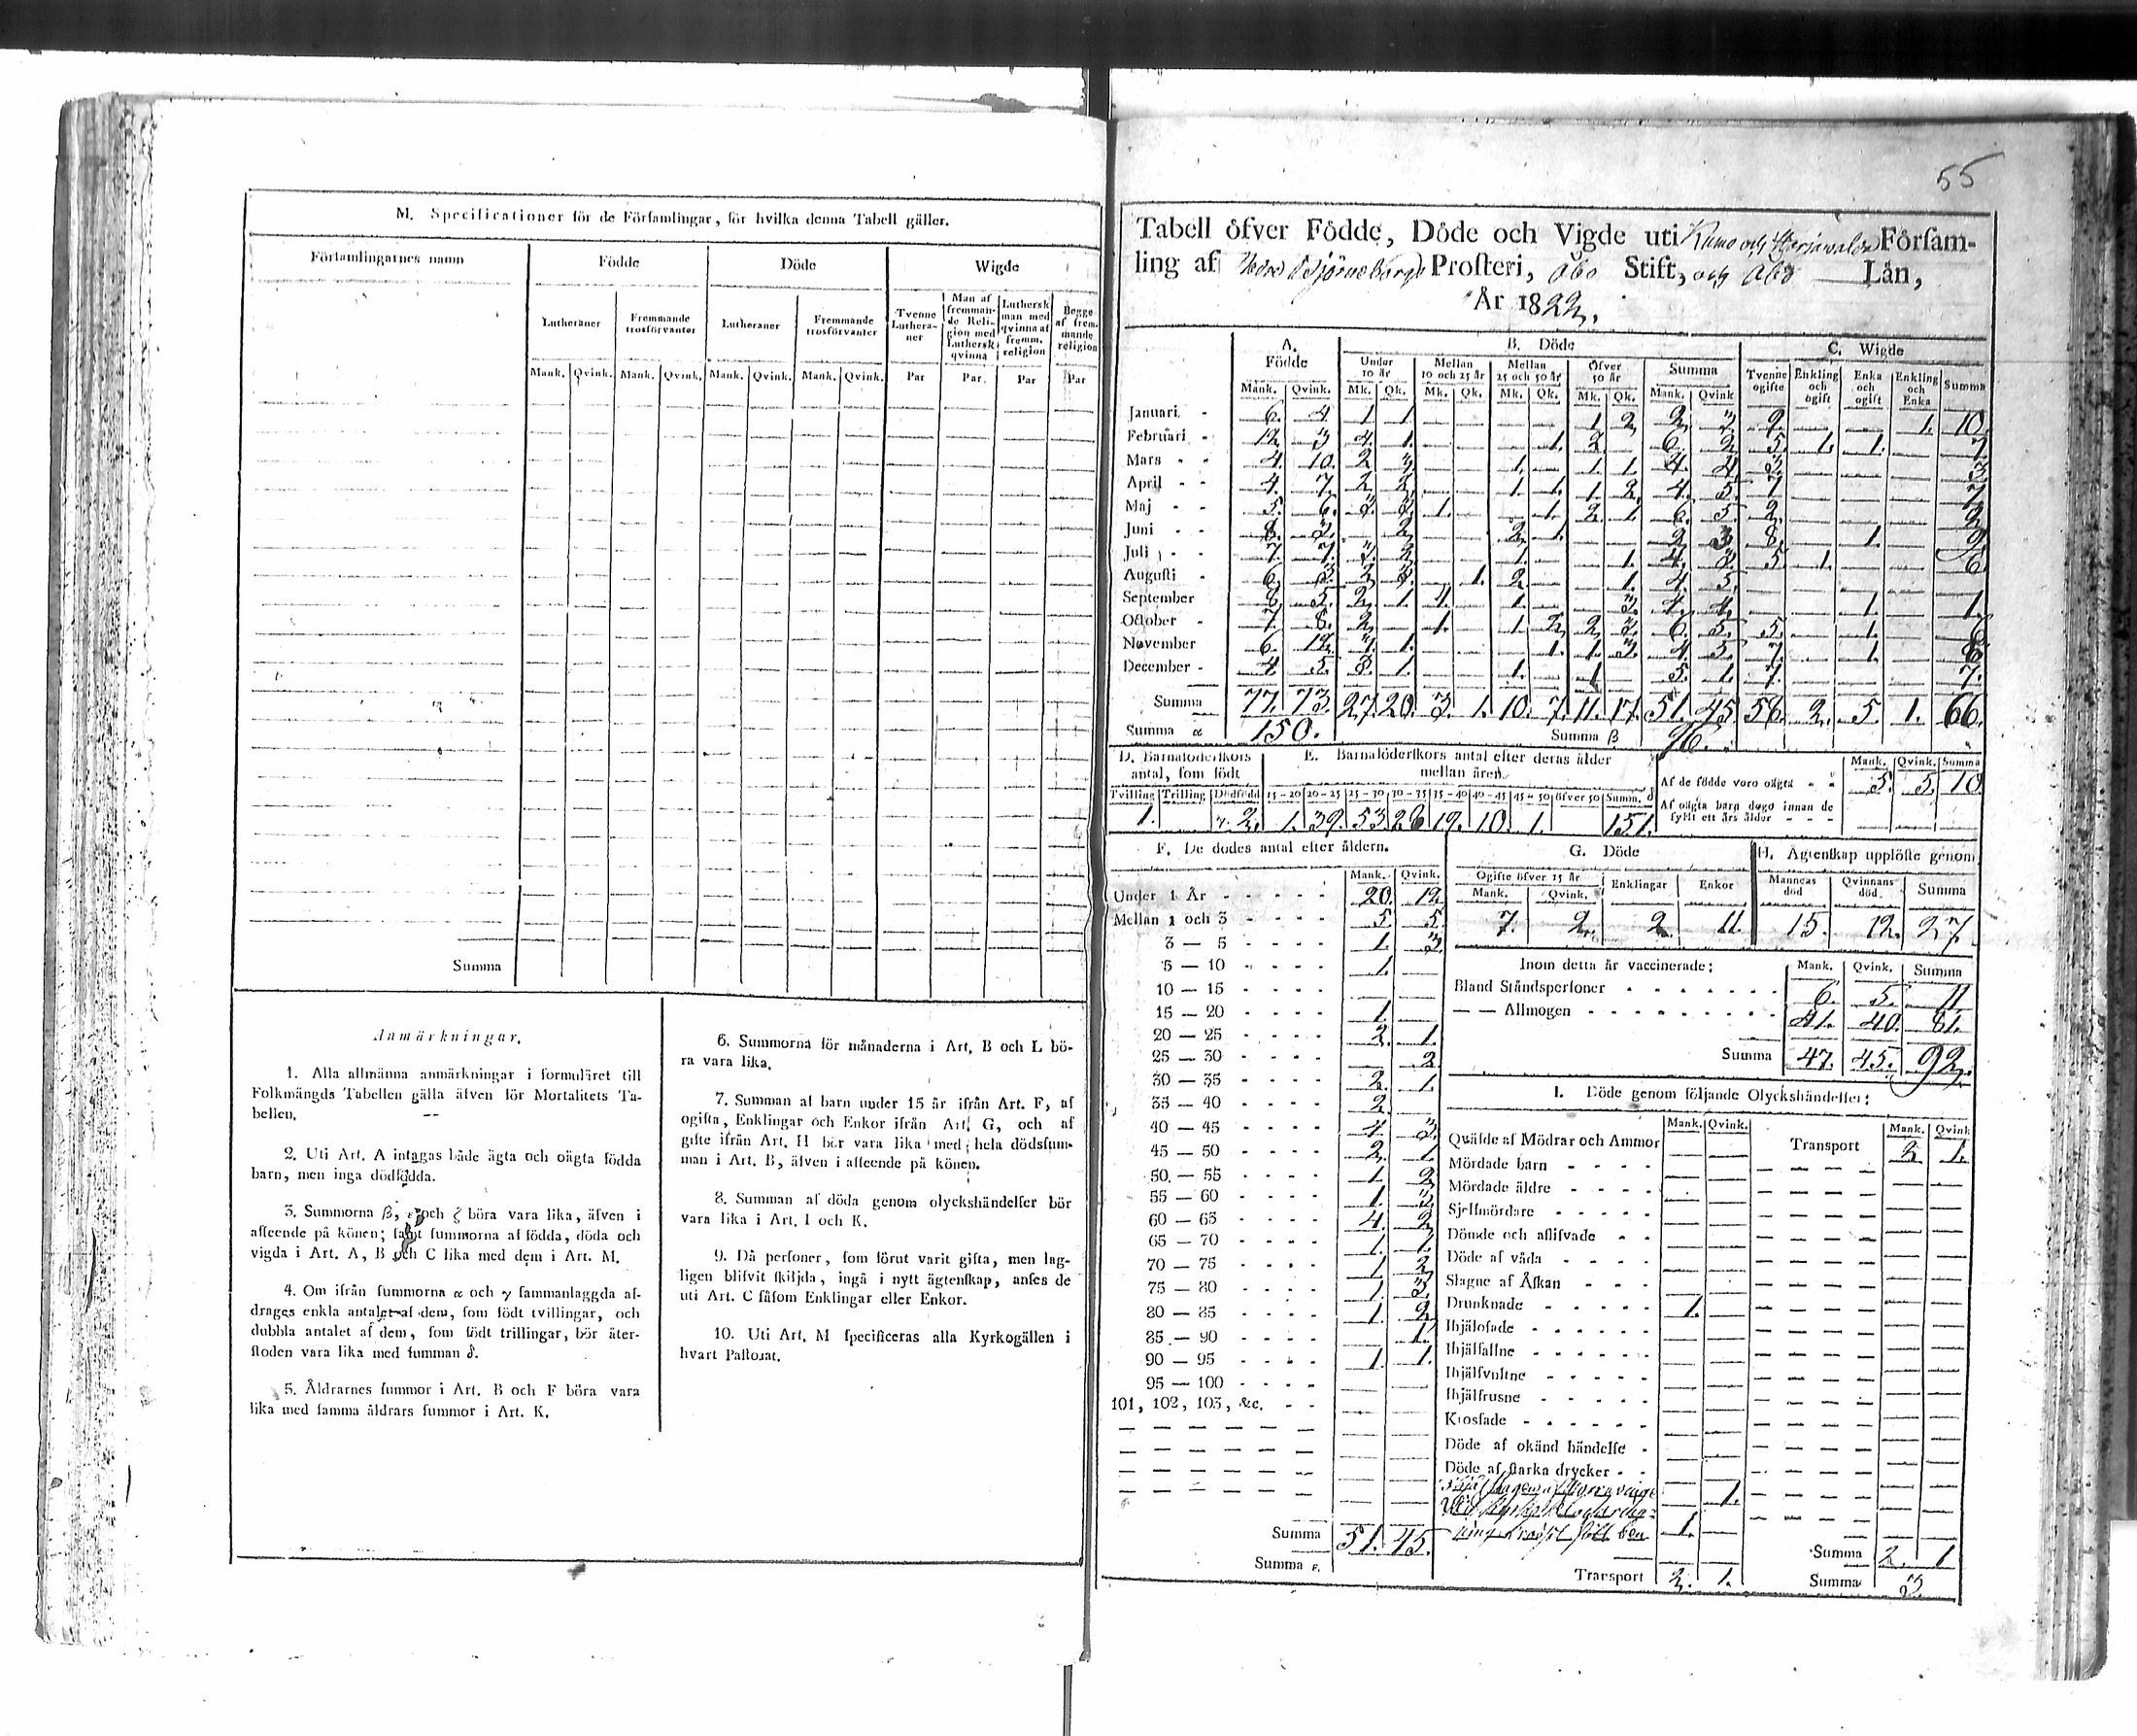 M. Specificationer för de Församlingar, för hvilka denna Tabell gäller.
Församlingarnes namn
Födde
Döde
Wigde
Lutheraner
Fremmande trosförvanter
Lutheraner
Fremmande trosförvanter
Tvenne Lutheraner
Man af fremmande Religion med Luthersk qvinna
Luthersk man med qvinna af fremm. religion
Begge af fremmande religion
Mank. Qvink. Mank. Qvink. Mank. Qvink. Mank. Qvink. Par Par Par Par
Summa
Anmärkningar.
1. Alla allmänna anmärkningar i formuläret till
Folkmängds Tabellen gälla äfven för Mortalitets Ta-
bellen.
2. Uti Art. A intagas både ägta och oägta födda
barn, men inga dödfödda.
3. Summorna β, ε och ζ böra vara lika, äfven i
afseende på könen; samt summorna af födda, döda och
vigda i Art. A, B och C lika med dem i Art. M.
4. Om ifrån summorna α och γ sammanlaggda af-
drages enkla antalet af dem, som födt tvillingar, och
dubbla antalet af dem, som födt trillingar, bör åter-
stoden vara lika med summan δ.
5. Åldrarnes summor i Art. B och F böra vara
lika med samma åldrars summor i Art. K.
6. Summorna för månaderna i Art. B och L bö-
ra vara lika.
7. Summan af barn under 15 år ifrån Art. F, af
ogifta, Enklingar och Enkor ifrån Art. G, och af
gifte ifrån Art. H bör vara lika med hela dödssum-
man i Art. B, äfven i afseende på könen.
8. Summan af döda genom olyckshändelser bör
vara lika i Art. I och K.
9. Då personer, som förut varit gifta, men lag-
ligen blifvit skiljda, ingå i nytt ägtenskap, anses de
uti Art. C såsom Enklingar eller Enkor.
10. Uti Art. M specificeras alla Kyrkogällen i
hvart Pastorat.
55
Tabell öfver Födde, Döde och Vigde uti Kumo och Församling
af Nedre Björneborgs Prosteri, Åbo Stift, och Åbo Län,
År 1822.
A. Födde
B. Döde
C. Wigde
Under 10 år
Mellan 10 och 25 år
Mellan 25 och 50 år
Öfver 50 år
Summa
Tvenne ogifte
Enkling och ogift
Enka och ogift
Enkling och Enka
Summa
Mank. Qvink. Mk. Qk. Mk. Qk. Mk. Qk. Mk. Qk. Mank. Qvink
Januari 6. 4. 1 1 1 2 2 3 9. 1. 10.
Februari 12 3 4 1. 1. 2 6. 2 5. 1. 1. 7
Mars 4. 10. 2 3 1. 1. 1. 4. 4 3 3
April 4. 7. 2 2 1. 1. 1 2. 4. 5. 7 7
Maj 5. 6. 3 3 1. 1. 2. 1. 6. 5. 2. 2
Juni 8. 3. 2 2. 1. 2 3 8. 1. 9
Juli 7. 7. 3. 2 1. 1. 4. 3. 5. 1. 6.
Augusti 6. 3. 2 3. 1. 2. 1. 4. 5.
September 8. 5. 2. 1. 1. 1. 3. 4. 4. 1. 1.
October 7. 8. 2. 1. 1 2 2 3. 6. 5. 5. 1. 6
November 6. 12. 3. 1. 1. 1. 3. 4. 5. 7. 1. 8
December 4 5. 3. 1. 1. 1 5. 1. 7. 7.
Summa 77. 73. 27. 20. 3. 1. 10. 7. 11. 17. 51. 45 58. 2. 5. 1. 66.
Summa α 150.
Summa β 96.
D. Barnaföderskors antal, som födt
Tvilling Trilling Dödfödd
1. 2.
E. Barnaföderskors antal efter deras ålder mellan åren
15-20 20-25 25-30 30-35 35-40 40-45 45-50 öfver 50 Summ. δ
1. 39. 53 26 19. 10. 1. 151.
Mank. Qvink. Summa
Af de födde voro oägta 5. 5. 10
Af oägta barn dogo innan de
fyllt ett års ålder
F. De dödes antal efter åldern.
Mank. Qvink.
Under 1 År 20. 12
Mellan 1 och 3 5 5.
3 — 5 1. 3.
5 — 10 1.
10 — 15
15 — 20 1.
20 — 25 2. 1.
25 — 30 2
30 — 35 2. 1
35 — 40 2.
40 — 45 4. 3.
45 — 50 2. 1
50 — 55 1. 2
55 — 60 1. 3
60 — 65 4. 2
65 — 70 1. 1.
70 — 75 1 2
75 — 80 1. 3.
80 — 85 1. 2
85 — 90 1.
90 — 95 1. 1.
95 — 100
101, 102, 103, &c.
Summa 51. 45.
Summa ε.
G. Döde
Ogifte öfver 15 år
Mank. Qvink. Enklingar Enkor
7. 2. 2. 11.
H. Ägtenskap upplöste genom
Mannens död Qvinnans död. Summa
15. 12. 27
Inom detta år vaccinerade: Mank. Qvink. Summa
Bland Ståndspersoner 6. 5. 11.
— — Allmogen 41. 40. 81.
Summa 47. 45. 92.
I. Döde genom följande Olyckshändelser:
Mank. Qvink. Mank. Qvink
Qväfde af Mödrar och Ammor
Transport 2 1.
Mördade barn
Mördade äldre
Sjelfmördare
Dömde och aflifvade
Döde af våda
Slagne af Åskan
Drunknade 1.
Ihjälosade
Ihjälfallne
Ihjälsvultne
Ihjälfrusne
Krossade
Döde af okänd händelse
Döde af starka drycker
1.
1.
Transport 2. 1.
Summa 2. 1
Summa 3.